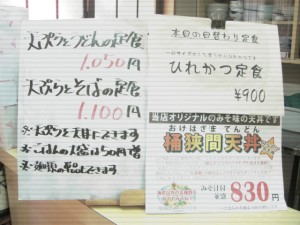 天ぷらとうどんの定食
1.050円
天ぷらとそばの定食
1.100円
※天ぷらを天丼にできます
※ごはんの大盛は50円増
本日の日替わり定食
ひれかつ定食
¥900
当店オリジナルのみそ味の天丼です
おけはざま てんどん
桶狭間天丼
みそ汁付
830円